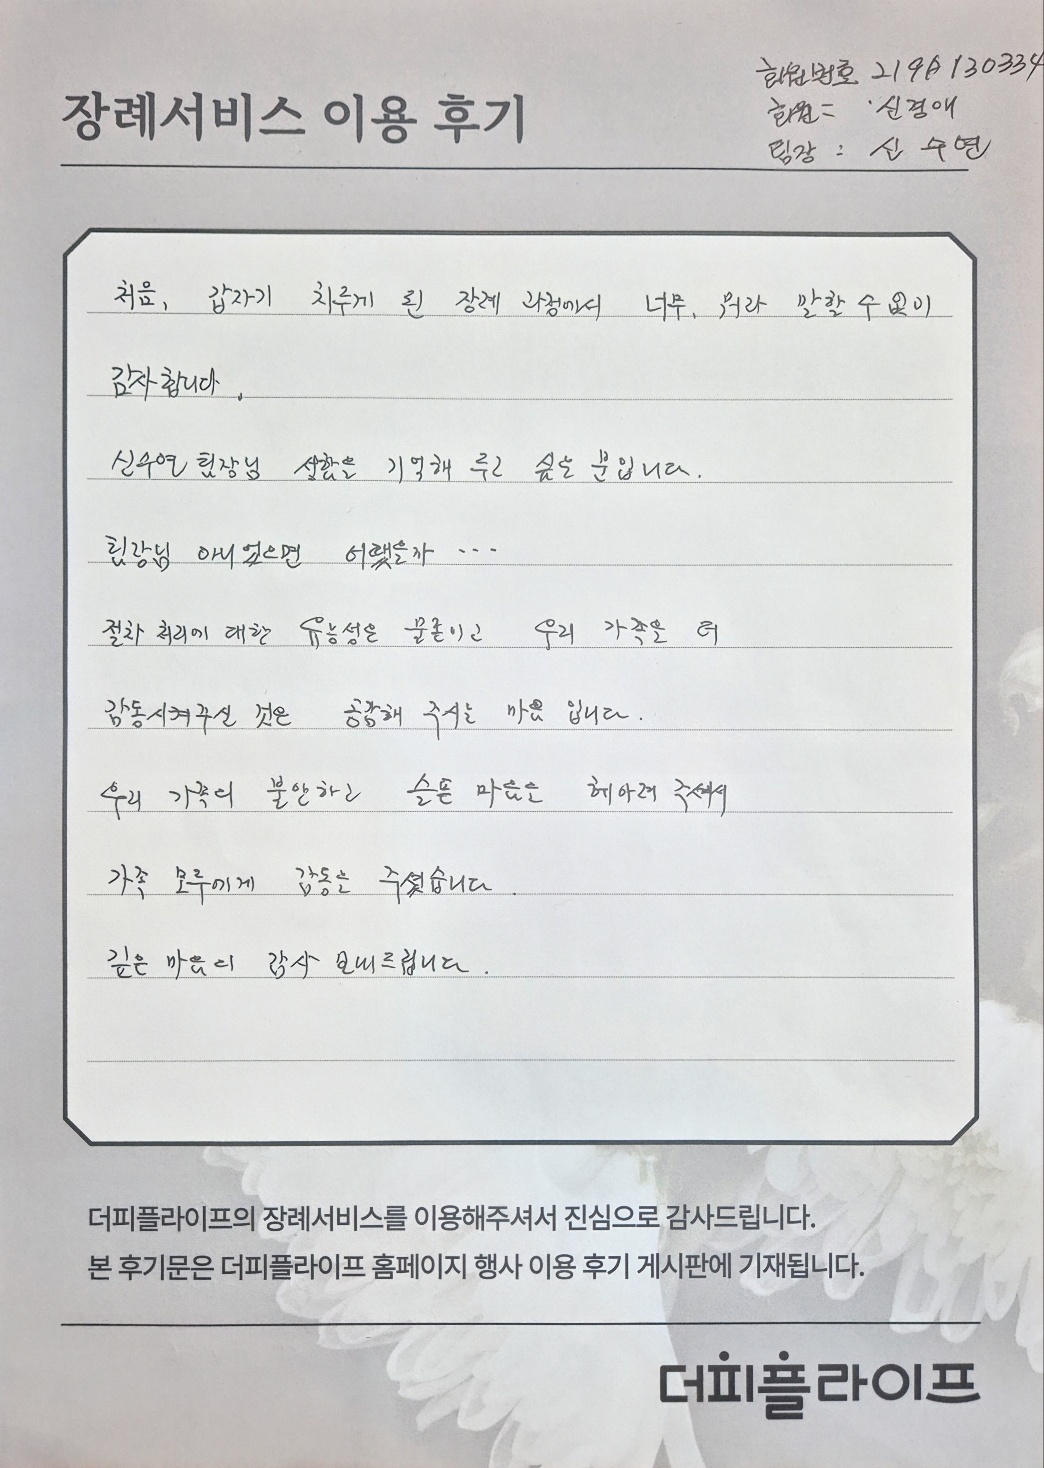 회원번호 219A130334
장례서비스 이용 후기
회원 = 신경애
팀장 : 신수연
처음, 갑자기 치루게 된 장례 과정에서 너무, 뭐라 말할 수 없이
감사합니다.
신수연 팀장님 성함은 기억해 두고 싶은 분입니다.
팀장님 아니었으면 어땠을까 ...
절차 처리에 대한 유능성은 물론이고 우리 가족을 더
감동시켜주신 것은 공감해 주시는 마음 입니다.
우리 가족의 불안하고 슬픈 마음을 헤아려 주셔서
가족 모두에게 감동을 주셨습니다.
깊은 마음의 감사 보내드립니다.
더피플라이프의 장례서비스를 이용해주셔서 진심으로 감사드립니다.
본 후기문은 더피플라이프 홈페이지 행사 이용 후기 게시판에 기재됩니다.
더피플라이프